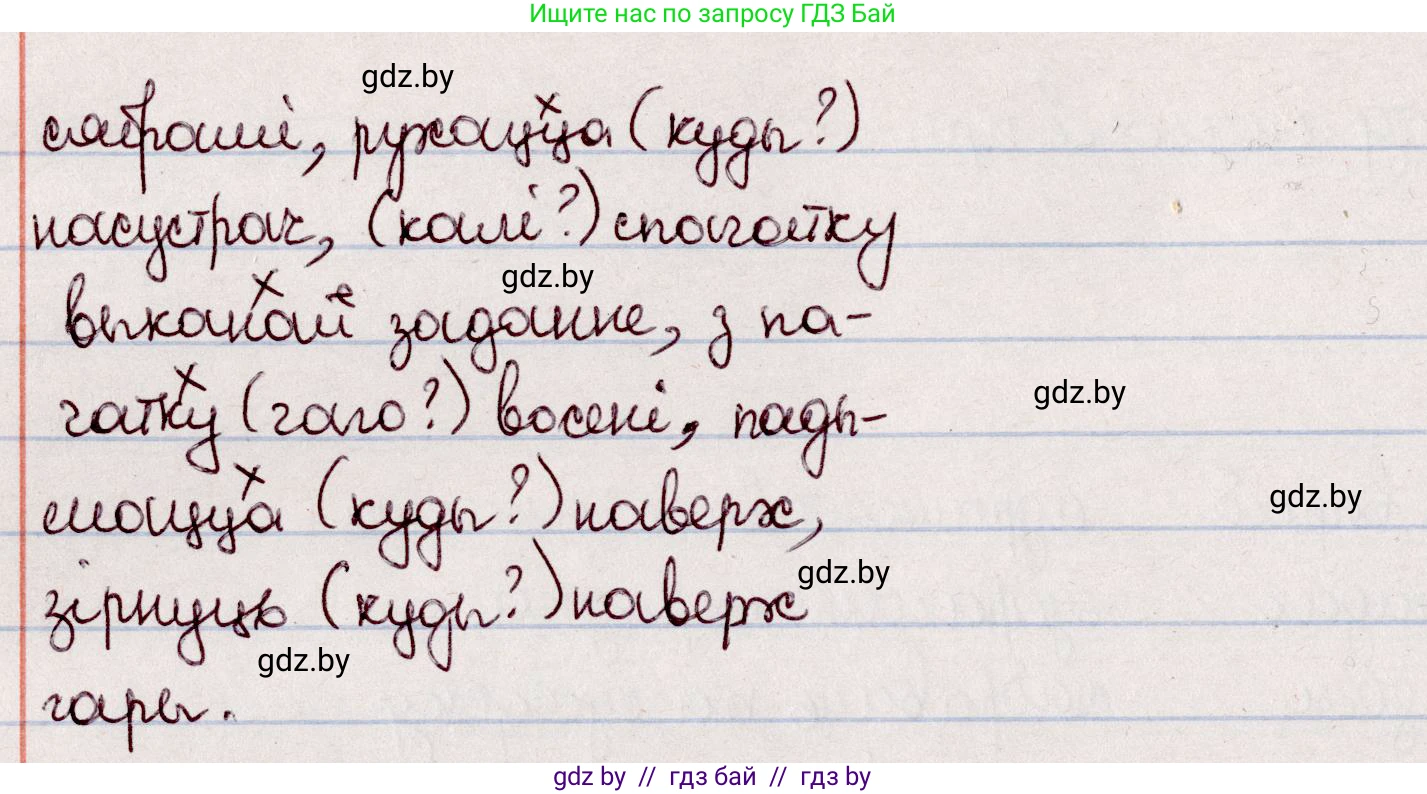 Ищите нас по запросу ГДЗ Бай
gdz.by
сябрамі, рухацца (куды?)
насустрач, (калі?) спачатку
gdz.by
выканай заданне, з па-
gdz.by
чатку (чаго?) восені, пады-
gdz.by
мацца (куды?) наверх,
gdz.by
зірнуць (куды?) наверх
gdz.by
гары.
gdz by // гдз бай // гдз by